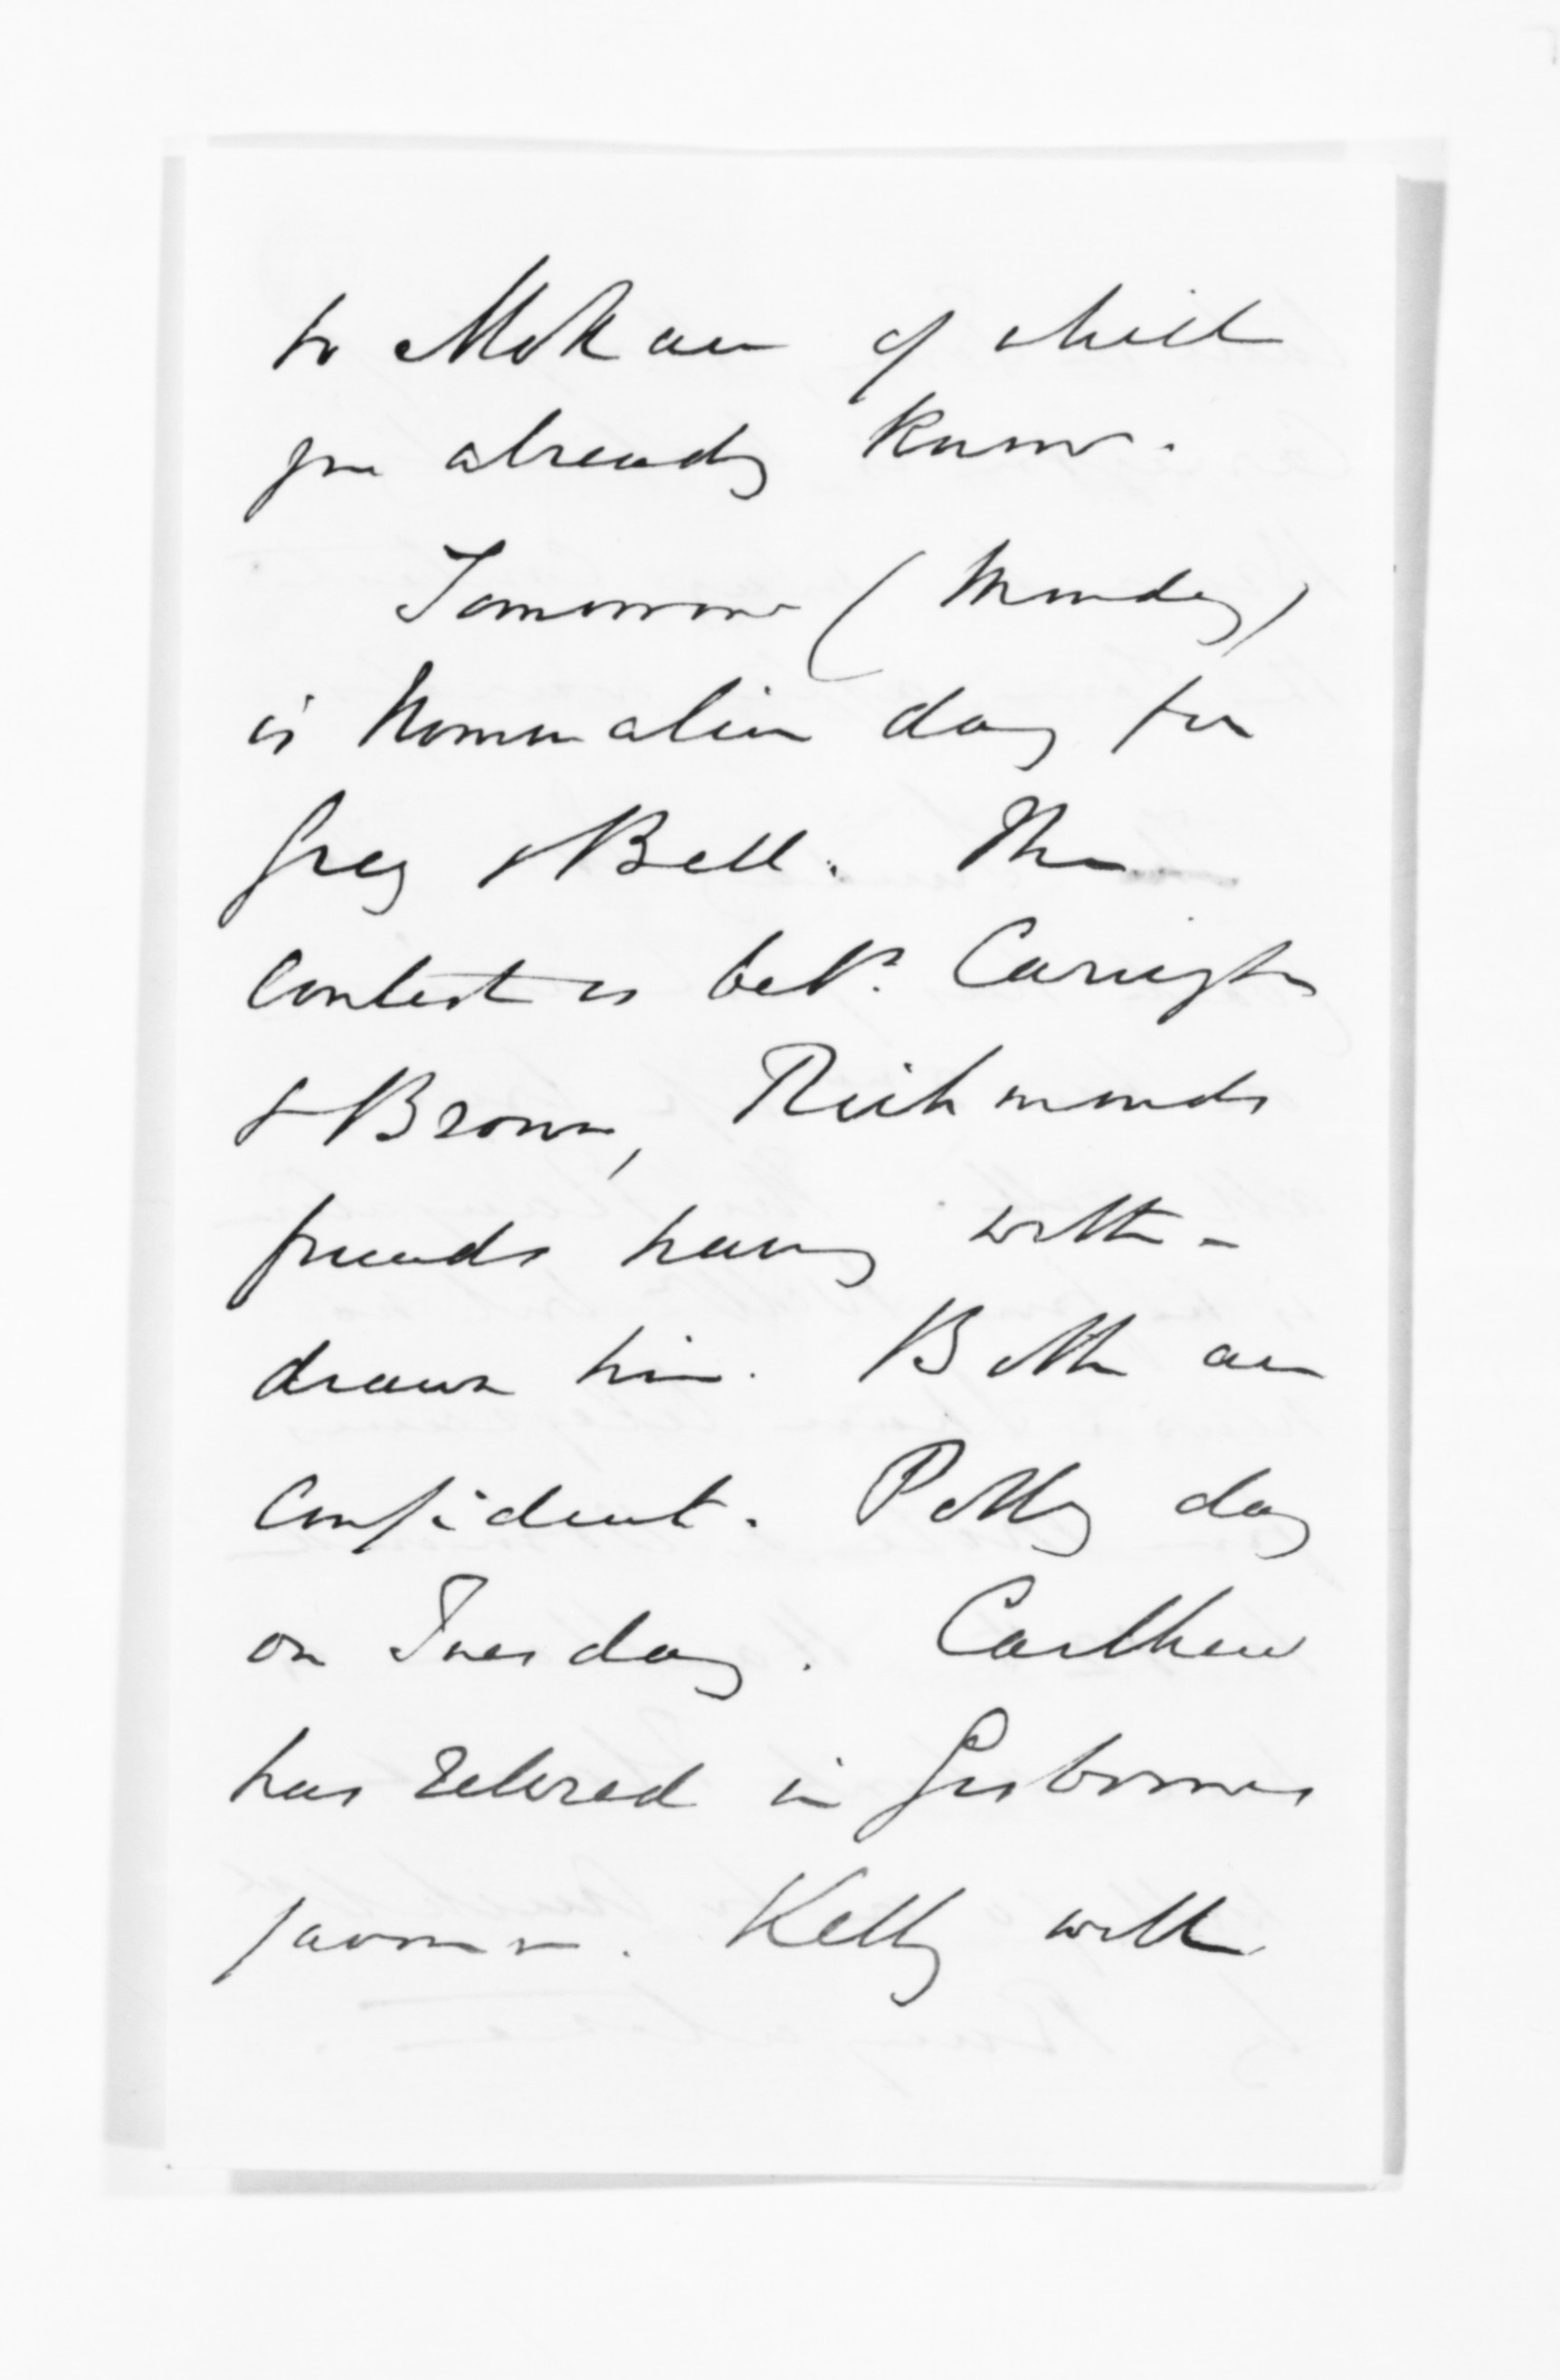 to Mokau of which
you already know.
Tomorrow (Monday)
is Nomination day for
Grey & Bell. The
Contest is betn. Carrington
& Brown, Richmonds
friends having with-
drawn him. Both are
confident. Polling day
on Tuesday. Carthew
has retired in Gisbornes
favour. Kelly will